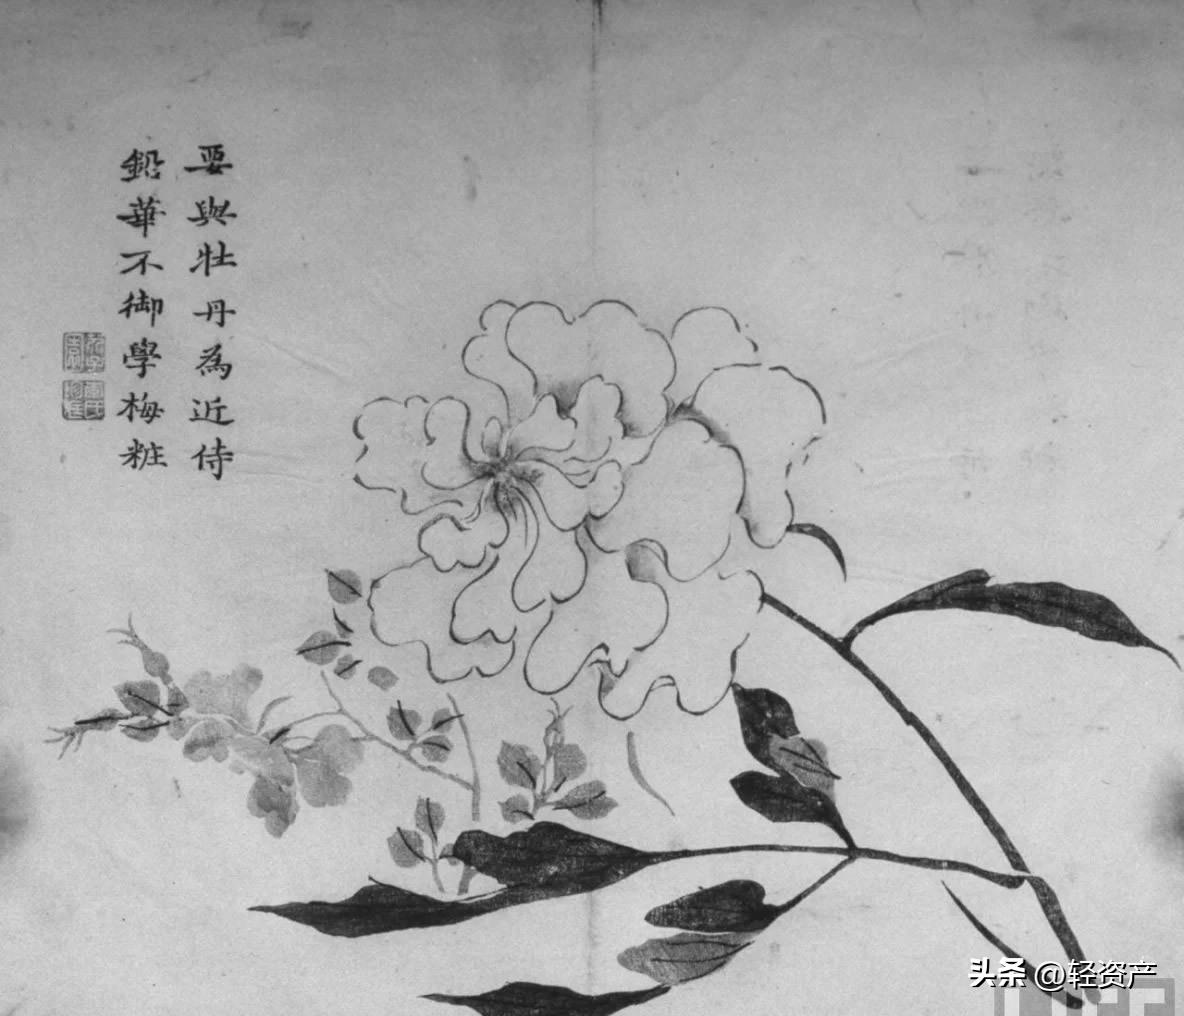 要與牡丹為近侍
鉛華不御學梅粧
头条 @轻资产
LIFE